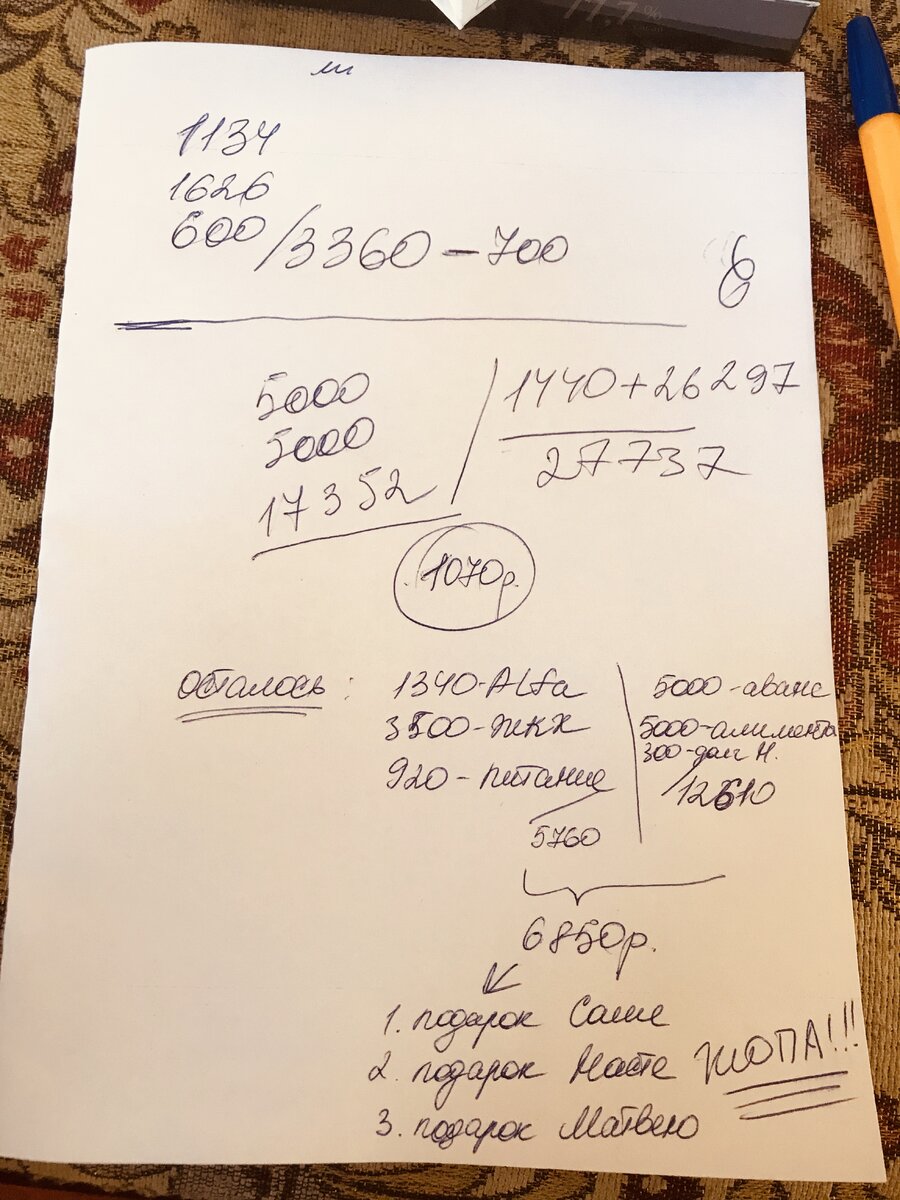 77.7 %
1134
1626
600 / 3360 - 700
6
5000
5000
17352
1440+26297
27737
1070р.
Осталось:
1340-Alfa
3500-жкх
920-питание
5760
5000-аванс
5000-алименты
300-долг Н.
12610
6850р.
1. подарок Саше
2. подарок Насте
3. подарок Матвею
ЖОПА!!!